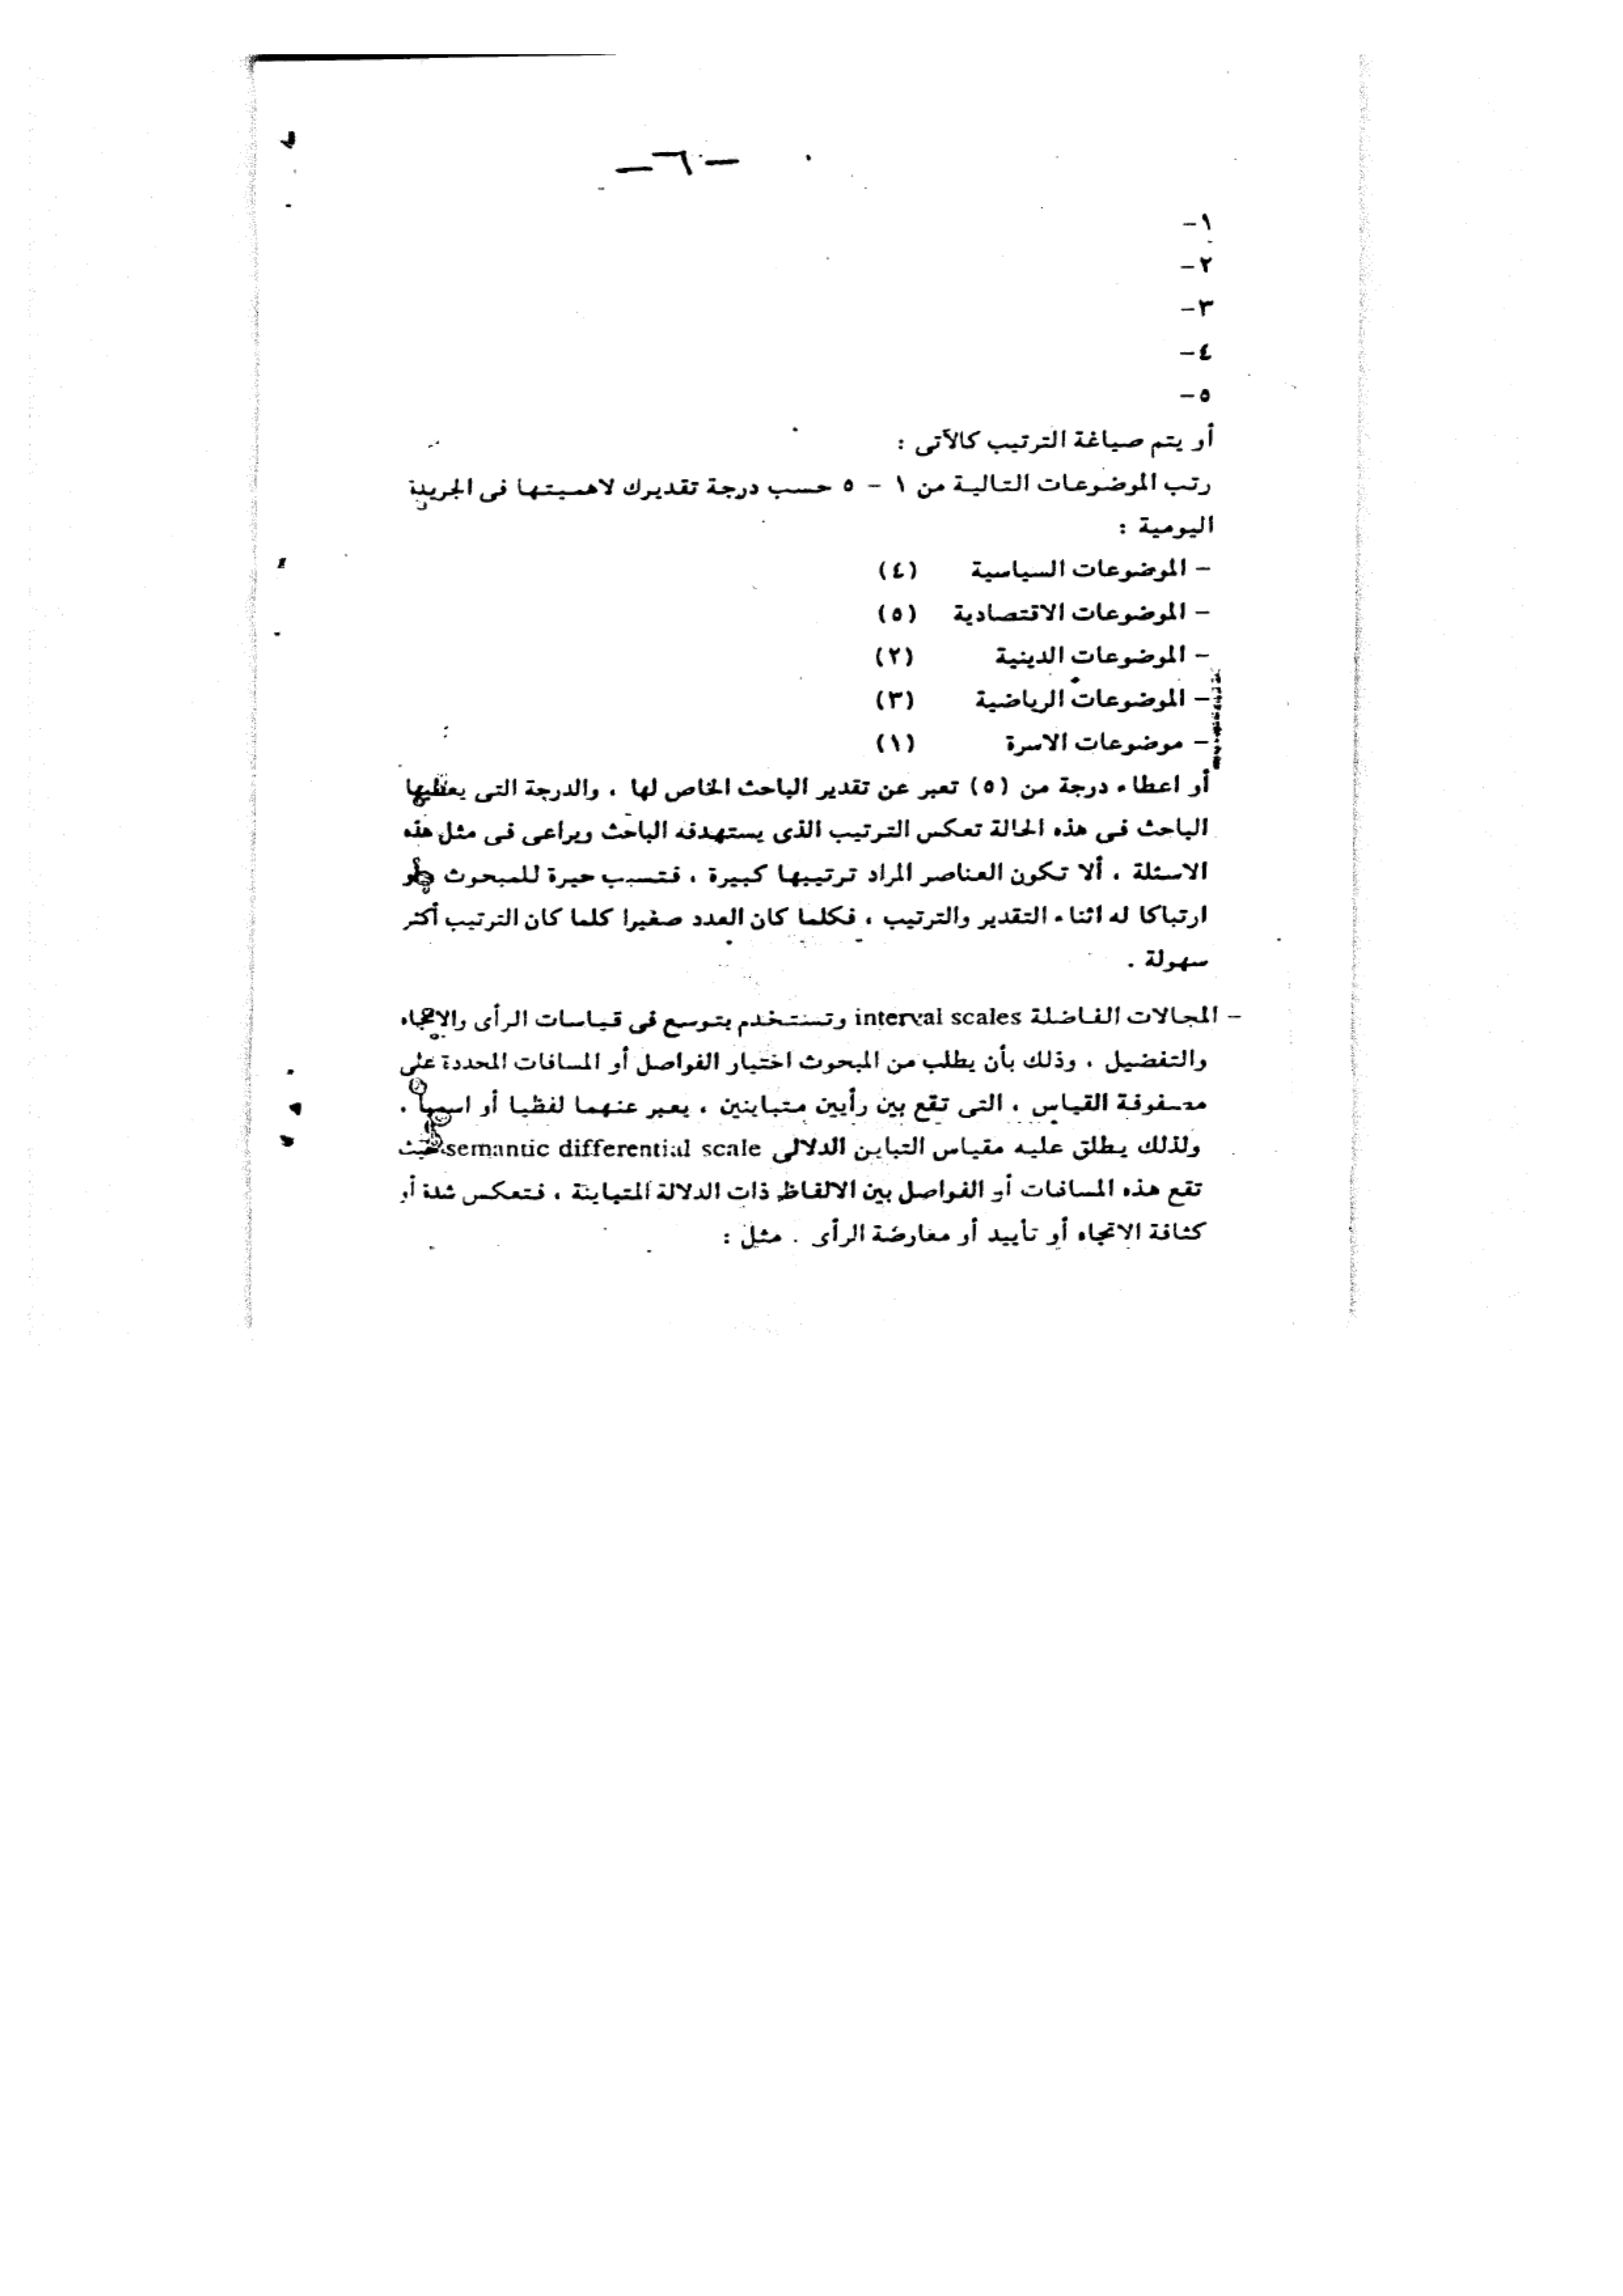 -٦-
١-
٢-
٣-
٤-
٥-
أو يتم صياغة الترتيب كالآتى :
رتب الموضوعات التالية من ١ - ٥ حسب درجة تقديرك لاهميتها فى الجريدة
اليومية :
- الموضوعات السياسية (٤)
- الموضوعات الاقتصادية (٥)
- الموضوعات الدينية (٢)
- الموضوعات الرياضية (٣)
- موضوعات الاسرة (١)
أو اعطاء درجة من (٥) تعبر عن تقدير الباحث الخاص لها ، والدرجة التى يعطيها
الباحث فى هذه الحالة تعكس الترتيب الذى يستهدفه الباحث ويراعى فى مثل هذه
الاسئلة ، ألا تكون العناصر المراد ترتيبها كبيرة ، فتسبب حيرة للمبحوث
ارتباكا له اثناء التقدير والترتيب ، فكلما كان العدد صغيرا كلما كان الترتيب أكثر
سهولة .
- المجالات الفاضلة interval scales وتستخدم بتوسع فى قياسات الرأى والاتجاه
والتفضيل ، وذلك بأن يطلب من المبحوث اختيار الفواصل أو المسافات المحددة على
مصفوفة القياس ، التى تقع بين رأيين متباينين ، يعبر عنهما لفظيا أو اسميا .
ولذلك يطلق عليه مقياس التباين الدلالى semantic differential scale حيث
تقع هذه المسافات أو الفواصل بين الالفاظ ذات الدلالة المتباينة ، فتعكس شدة أو
كثافة الاتجاه أو تأييد أو معارضة الرأى . مثل :